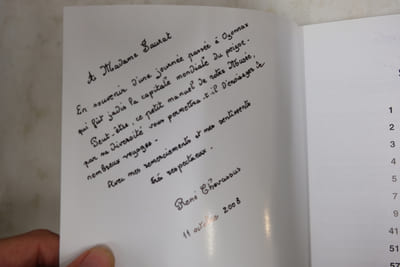 A Madame Saurat
En souvenir d'une journée passée à Oyonnax
qui fût jadis la capitale mondiale du peigne.
Peut-être, ce petit manuel de notre Musée,
par sa diversité vous permettra-t-il d'envisager de
nombreux voyages.
Avec mes remerciements et mes sentiments
très respectueux.
René
11 octobre 2008
1
11
32
45
51
57